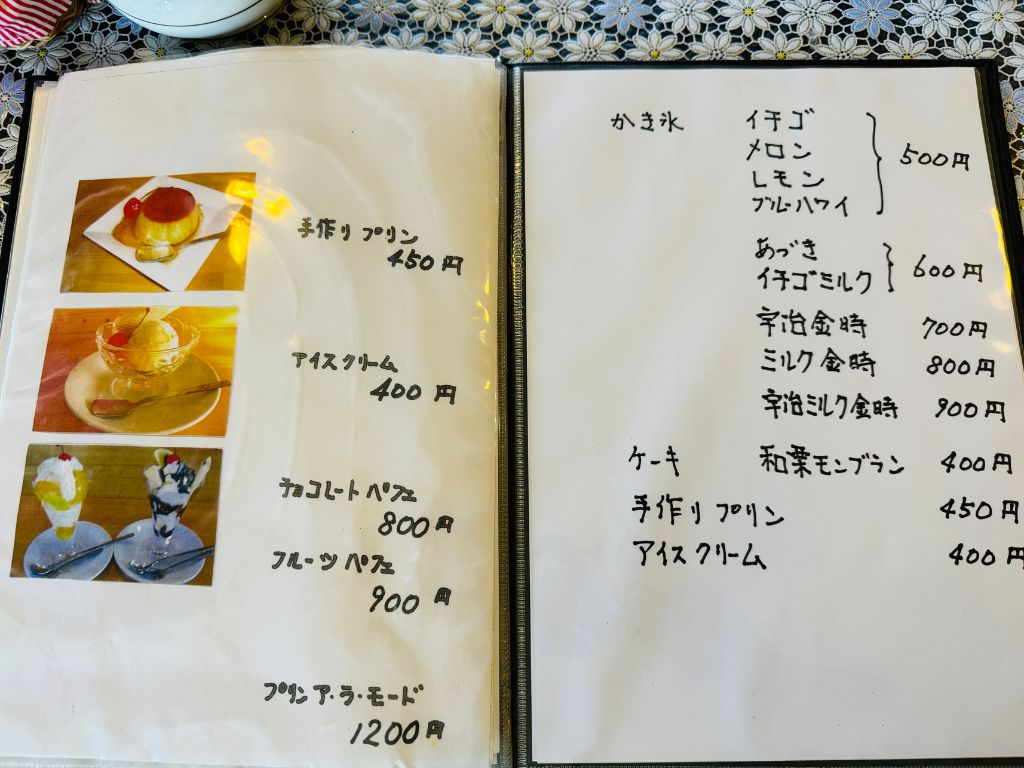 手作り プリン
450円
アイスクリーム
400円
チョコレート パフェ
800円
フルーツ パフェ
900円
プリン ア・ラ・モード
1200円
かき氷 イチゴ
メロン
レモン
ブルーハワイ
500円
あづき
イチゴミルク
600円
宇治金時 700円
ミルク金時 800円
宇治ミルク金時 900円
ケーキ 和栗モンブラン 400円
手作り プリン 450円
アイスクリーム 400円